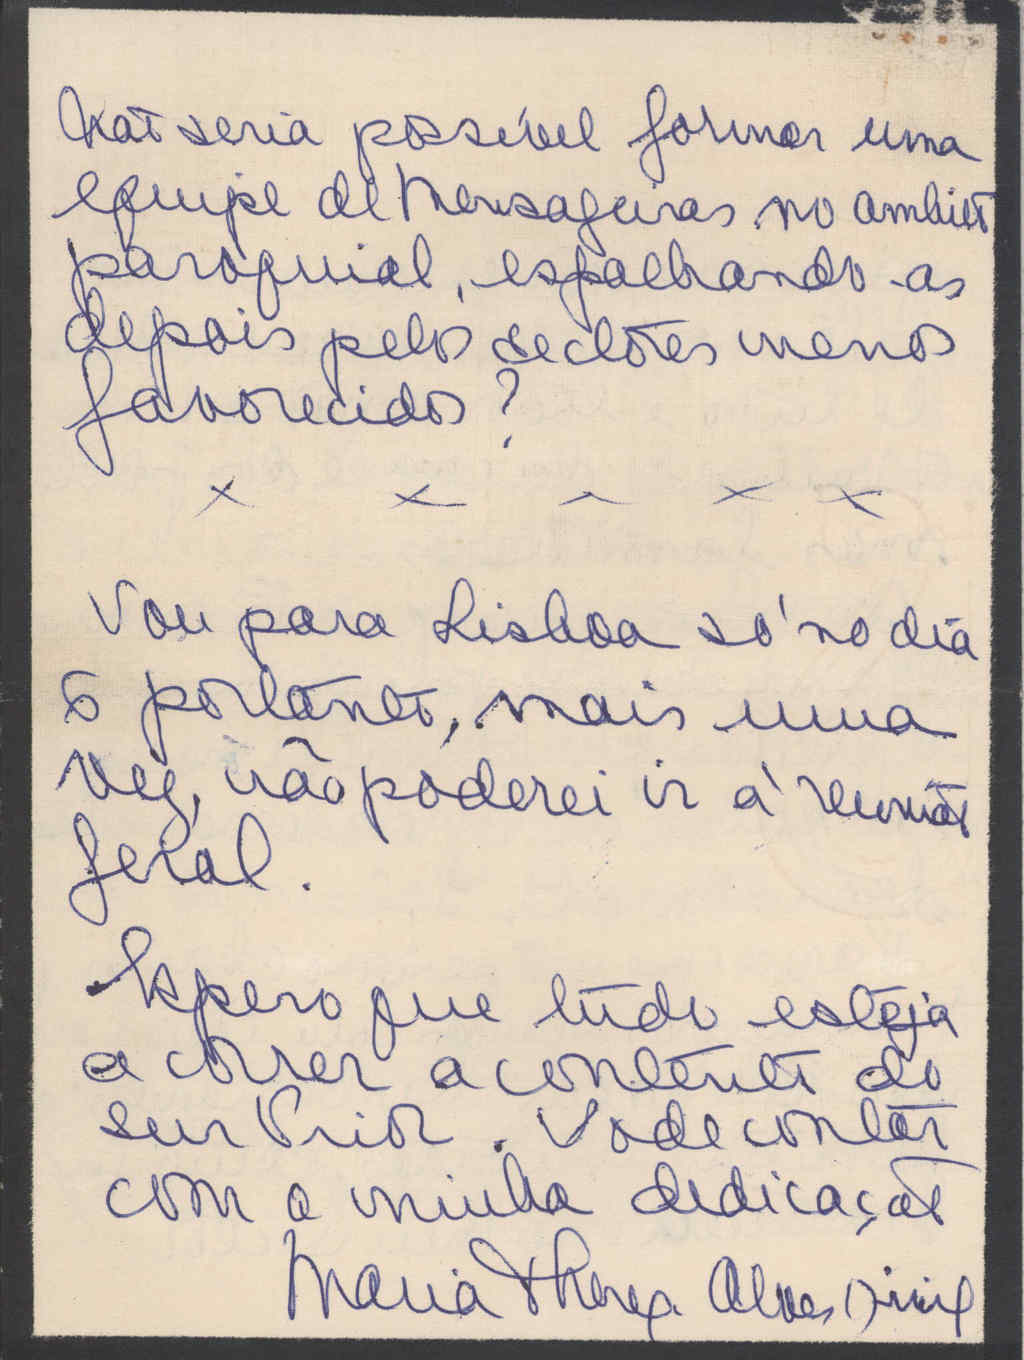 Não seria possível formar uma
equipe de Mensageiras no ambiente
paroquial, espalhando-as
depois pelos sectores menos
favorecidos?
x x - x x
Vou para Lisboa só no dia
6 portanto, mais uma
vez, não poderei ir à reunião
geral.
Espero que tudo esteja
a correr a contento do
senr Prior. Pode contar
com a minha dedicação
Maria Thereza Alves Diniz